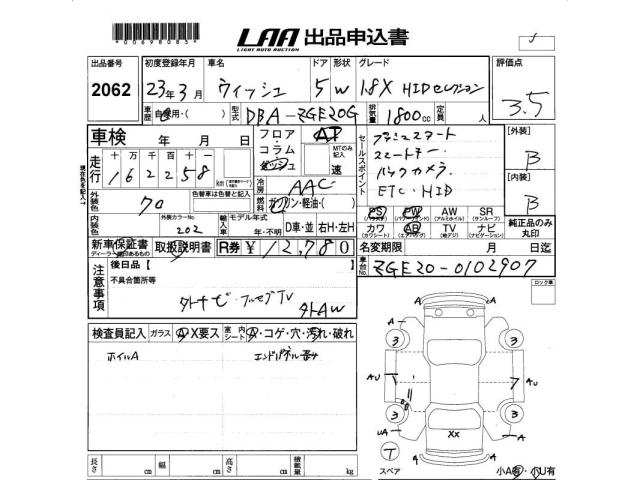 00698083
LAA 出品申込書
LIGHT AUTO AUCTION
出品番号 初度登録年月 車名 ドア 形状 グレード 評価点
2062 23年3月 ウィッシュ 5 W 1.8X HIDセレクション 3.5
車歴 自家用・( ) 型式 DBA-ZGE20G 排気量 1800cc 定員 人
車検 年 月 日
フロア・コラム AT MTのみ記入 速
セールスポイント
プッシュスタート
スマートキー
バックカメラ
ETC・HID
[外装] B
[内装] B
走行 十万千百十 162258 km
現在色を記入
冷房 AAC
外装色 クロ 色替車は色替と記入
燃料 ガソリン・軽油・( )
PS PW AW SR
(パワステ) (パワーウィンドウ) (アルミホイール) (サンルーフ)
内装色 外装カラーNo. 202 輸入車 モデル年式 年・不明 D車・並 右H・左H
カワ AB TV ナビ
(カワシート) (エアバッグ) (地デジ) (ナビゲーション)
純正品のみ丸印
新車保証書 取扱説明書 R券 ¥12,780
ディーラー捺印あるもの
名変期限 月 日迄
車台No. ZGE20-0102907
注意事項 後日品【
不具合箇所等
外ナビ・フルセグTV 外AW
ロック車
検査員記入 ガラス A X要ス 室内シート A・コゲ・穴・汚れ・破れ
ホイルA エンドパネル
A A
3 3
AU 7 U
A
3 3
UA A
XX
T
スペア
A A
小A有・小U有
長さ cm 幅 cm 高さ cm 積載量 kg